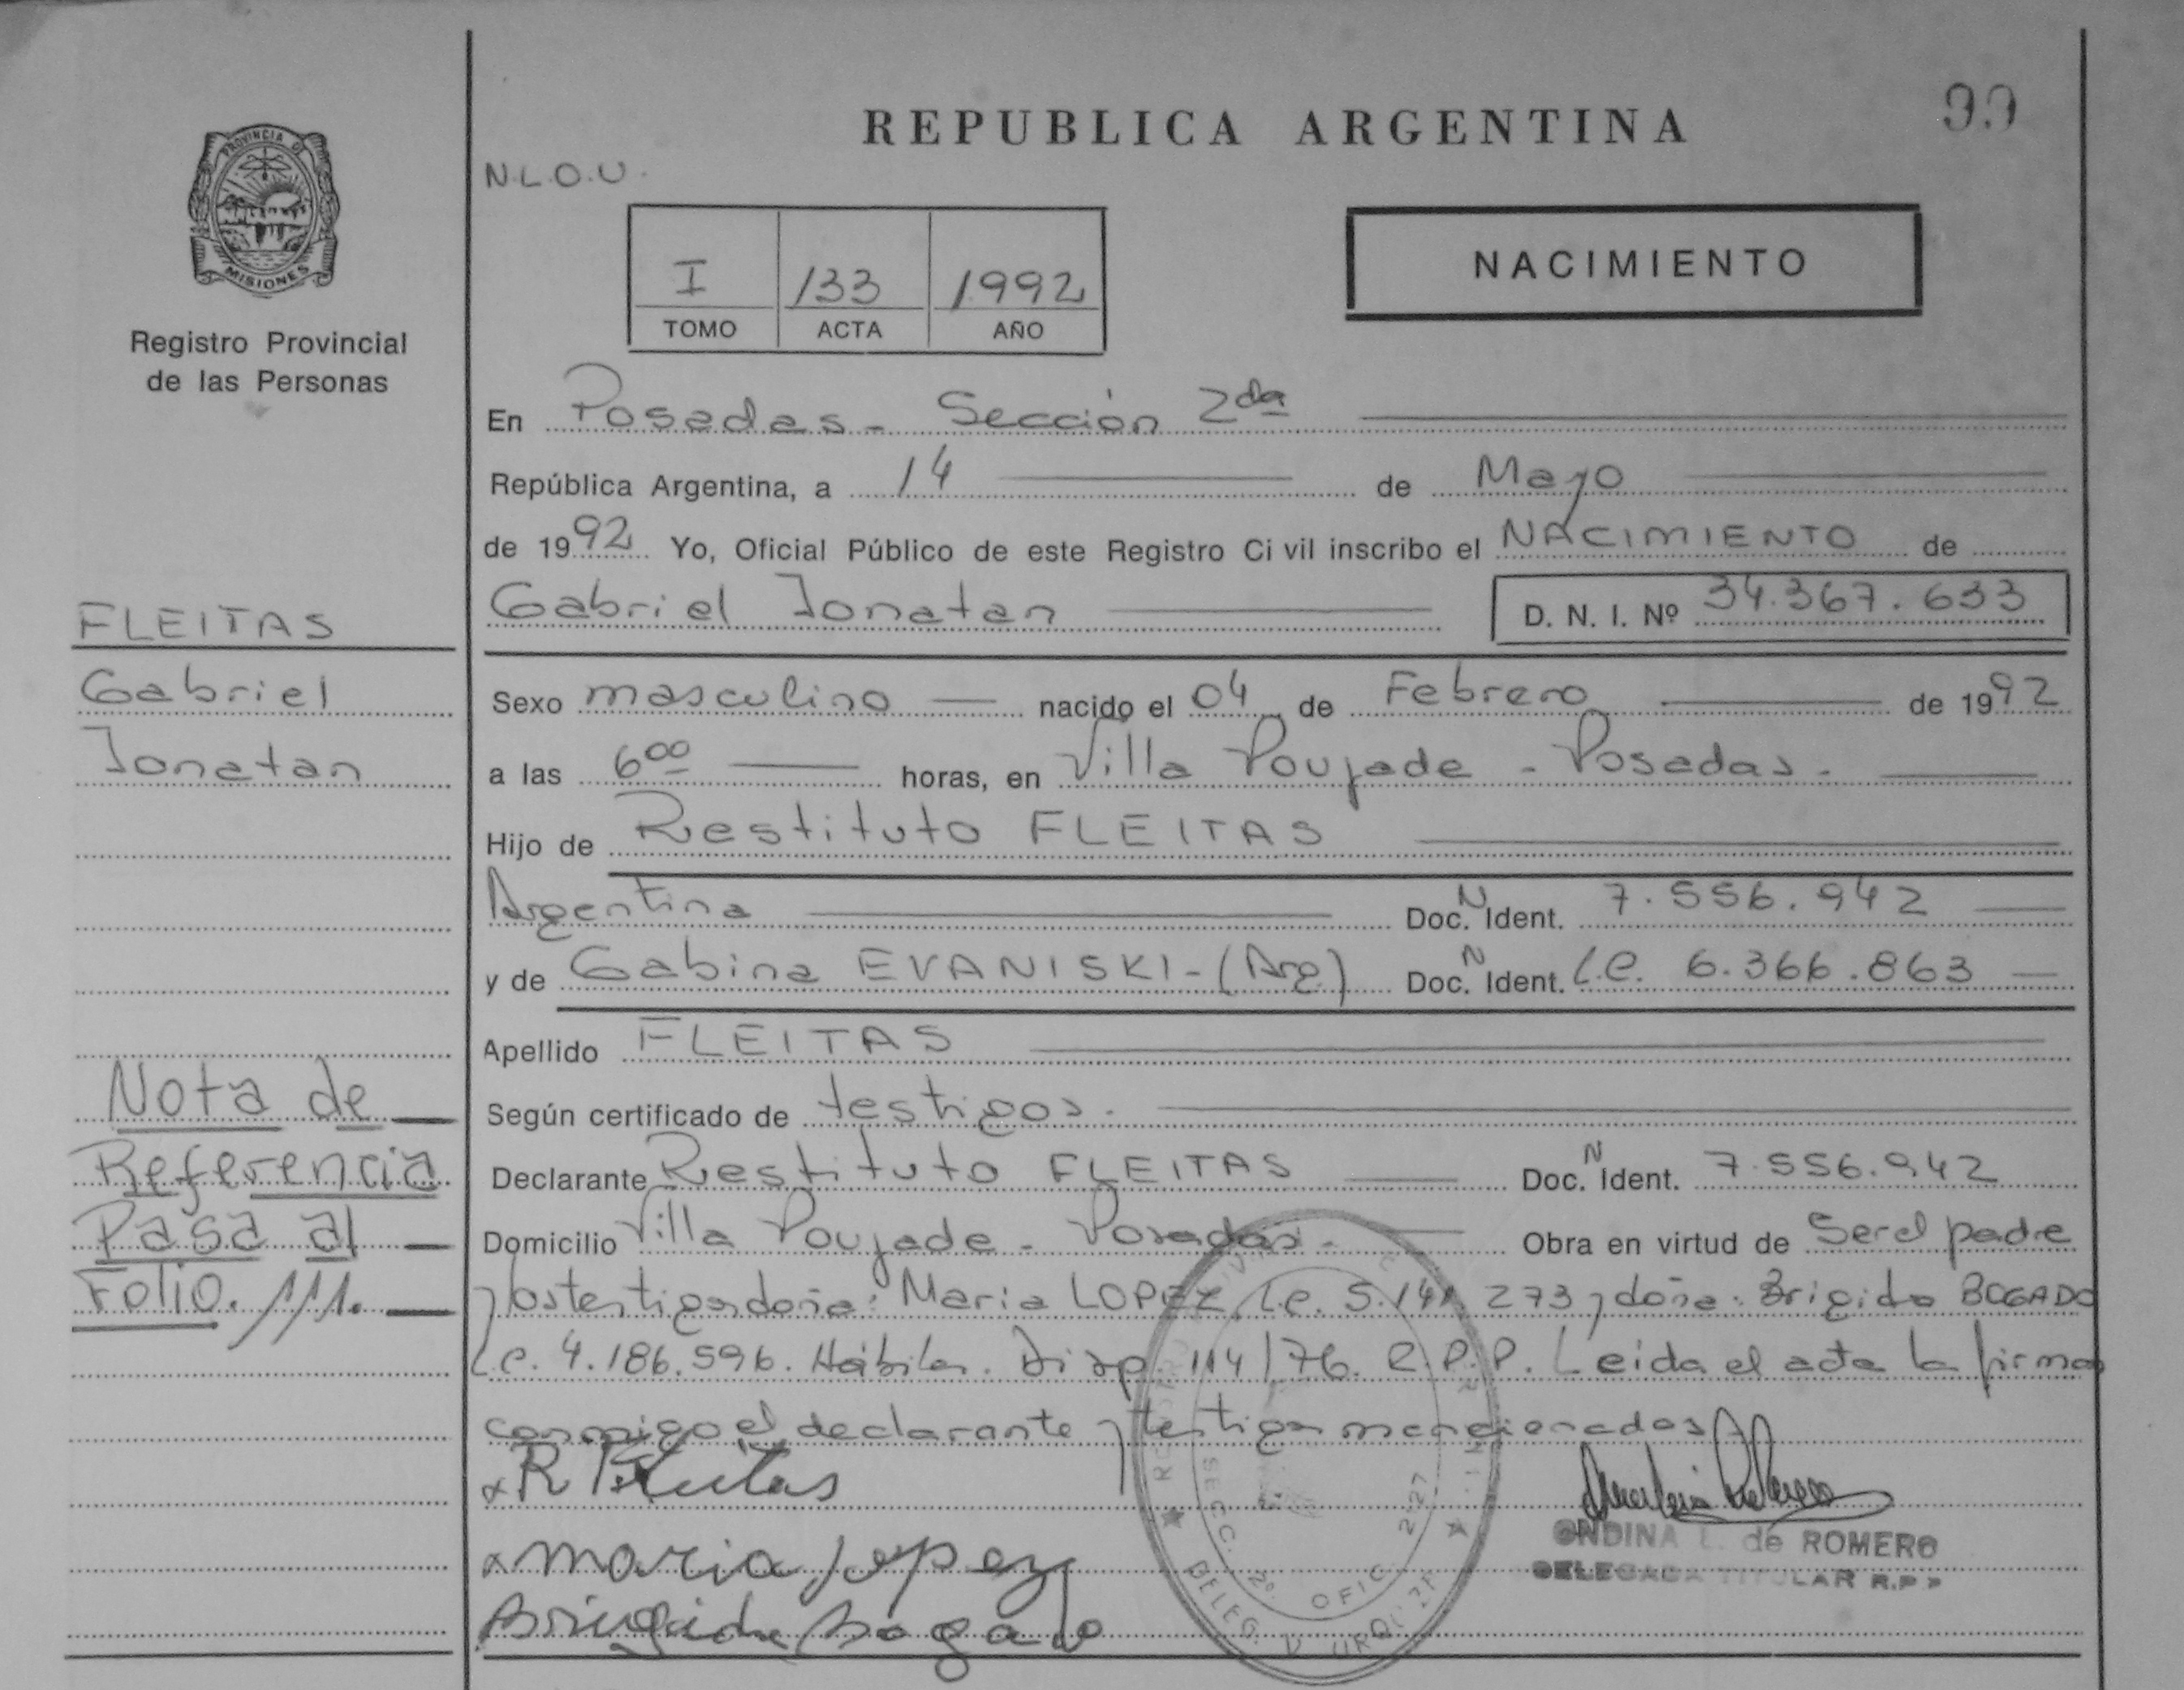 REPUBLICA ARGENTINA
99
PROVINCIA DE
MISIONES
Registro Provincial
de las Personas
N.L.O.U.
I 133 1992
TOMO ACTA AÑO
NACIMIENTO
En Posadas - Sección 2da
República Argentina, a 14 de Mayo
de 1992 Yo, Oficial Público de este Registro Ci vil inscribo el NACIMIENTO de
Gabriel Jonatan D. N. I. Nº 34.367.633
FLEITAS
Gabriel
Jonatan
Sexo masculino nacido el 04 de Febrero de 1992
a las 6 00 horas, en Villa Poujade - Posadas -
Hijo de Restituto FLEITAS
Argentina Doc. N Ident. 7.556.942
y de Gabina EVANISKI - (Arg) Doc. N Ident. L.C. 6.366.863
Apellido FLEITAS
Según certificado de testigos.
Declarante Restituto FLEITAS Doc. N Ident. 7.556.942
Domicilio Villa Poujade - Posadas - Obra en virtud de Ser el padre
Nota de
Referencia
Pasa al
Folio. 111.
doña: Maria LOPEZ, L.C. 5.141 273 y doña: Brigida BOGADO
L.C. 4.186.596. Hábiles. Disp. 114/76. R.P.P. Leida el acta la firma
conmigo el declarante y testigos mencionados
R Fleitas
Maria Lopez
Brigida Bogado
ONDINA L. de ROMERO
DELEGADA TITULAR R.P.P
SECC. 2º OFIC. 227
DELEG. V. URQUIZA